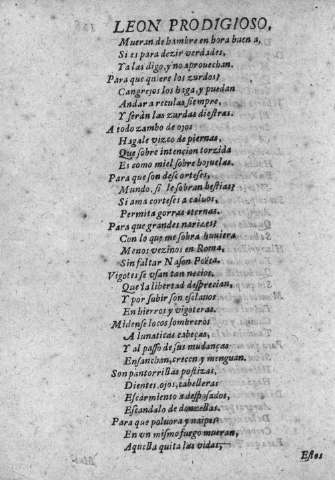 LEON PRODIGIOSO,
Mueran de hambre en hora buena,
Si es para dezir verdades,
Ya las digo, y no aprouechan.
Para que quiere los zurdos?
Cangrejos los haga, y puedan
Andar a reculas siempre,
Y seràn las zurdas diestras.
A todo zambo de ojos
Hagale vizco de piernas,
Que sobre intencion torzida
Es como miel sobre hojuelas.
Para que son descorteses,
Mundo, si le sobran bestias?
Si ama corteses a caluos,
Permita gorras eternas.
Para que grandes narizes?
Con lo que me sobra huuiera
Menos vezinos en Roma,
Sin faltar Nason Poëta.
Vigotes se vsan tan necios,
Que la libertad desprecian,
Y por subir son esclauos
En hierros y vigoteras.
Midense locos sombreros
A lunaticas cabeças,
Y al passo de sus mudanças
Ensanchan, crecen y menguan.
Son pantorrillas postizas,
Dientes, ojos, cabelleras
Escarmiento a desposados,
Escandalo de donzellas.
Para que poluora y naipes?
En vn mismo fuego mueran,
Aquella quita las vidas,
Estos